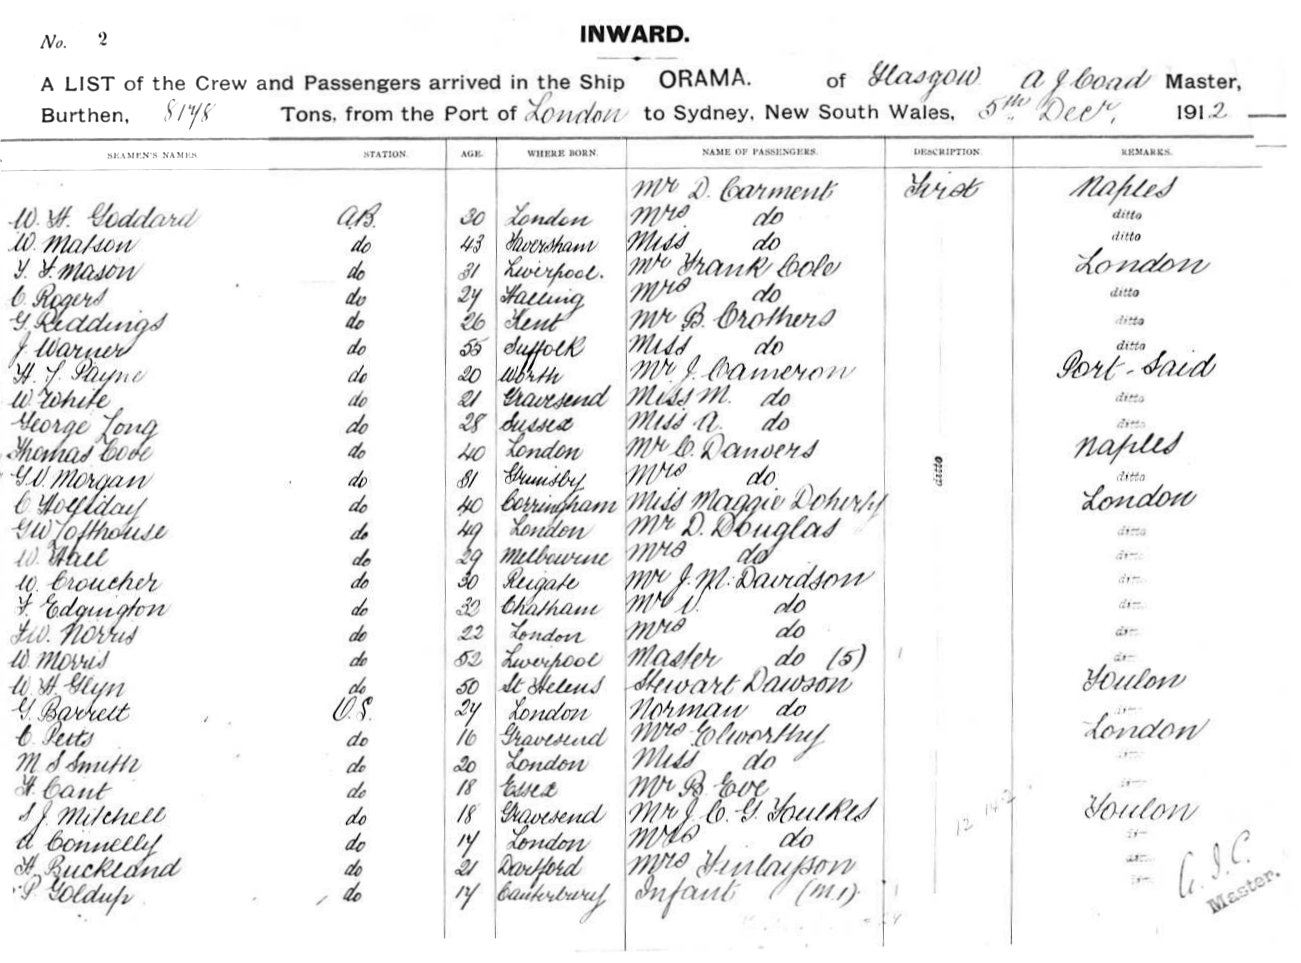 No. 2
INWARD.
A LIST of the Crew and Passengers arrived in the Ship ORAMA. of Glasgow A J Coad Master,
Burthen, 8178 Tons, from the Port of London to Sydney, New South Wales, 5th Decr, 1912
SEAMEN'S NAMES STATION. AGE. WHERE BORN. NAME OF PASSENGERS. DESCRIPTION. REMARKS.
Mr D. Carment First Naples
W. H. Goddard A.B. 30 London Mrs do ditto
W. Matson do 43 Faversham Miss do ditto
F. F. Mason do 31 Liverpool. Mr Frank Cole London
C. Rogers do 27 Halling Mrs do ditto
G. Riddings do 26 Kent Mr B. Crothers ditto
J. Warner do 55 Suffolk Miss do ditto
H. J. Payne do 20 Worth Mr J. Cameron Port-Said
W. White do 21 Gravesend Miss M. do ditto
George Long do 28 Sussex Miss A. do ditto
Thomas Cove do 40 London Mr C. Danvers Naples
G. W. Morgan do 31 Grimsby Mrs do ditto ditto
C. Holliday do 40 Corringham Miss Maggie Doherty London
G W Lofthouse do 49 London Mr D. Douglas ditto
W. Hall do 29 Melbourne Mrs do
W. Croucher do 30 Reigate Mr J. M. Davidson
F. Edgington do 32 Chatham Mr do
F. W. Norris do 22 London Mrs do
W. Morris do 52 Liverpool Master do (5)
W. H. Glyn do 50 St Helens Stewart Dawson Toulon
G. Barrett O.S. 27 London Norman do
C. Petts do 16 Gravesend Mrs Elworthy London
M S Smith do 20 London Miss do
H. Cant do 18 Essex Mr B. Eve
S. J. Mitchell do 18 Gravesend Mr J. C. G. Foulkes Toulon
A Connelly do 17 London Mrs do
H. Buckland do 21 Dartford Mrs Finlayson
P. Goldup do 17 Canterbury Infant (M.1)
A. J. C.
Master.